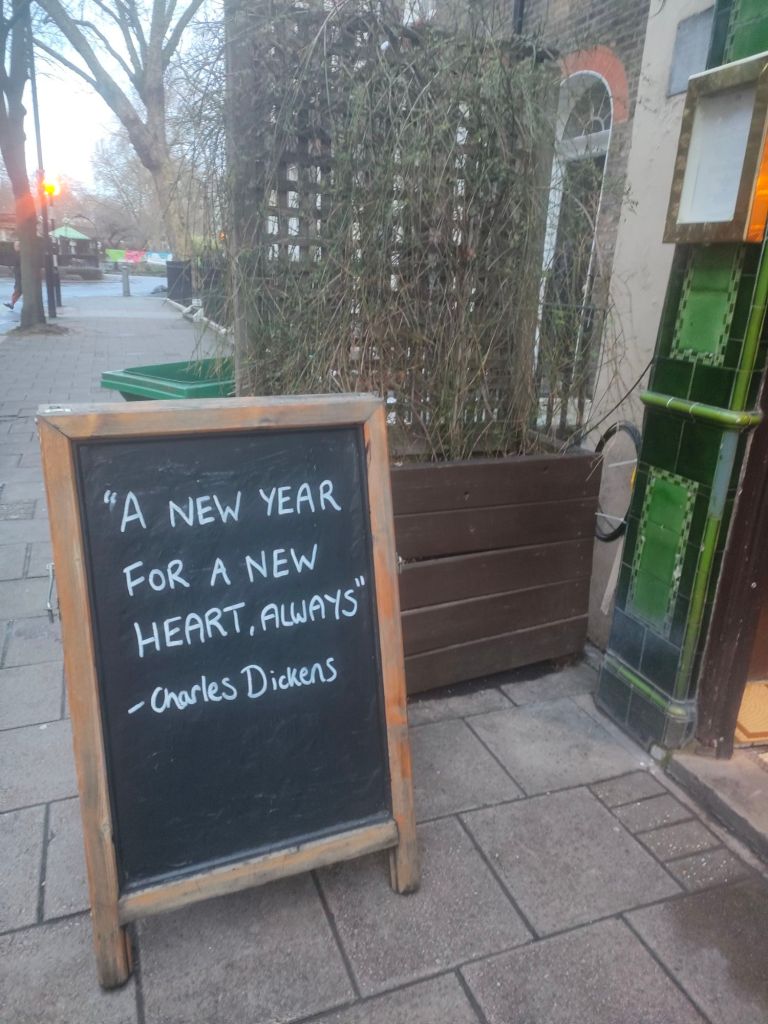 “A NEW YEAR
FOR A NEW
HEART, ALWAYS”
- Charles Dickens